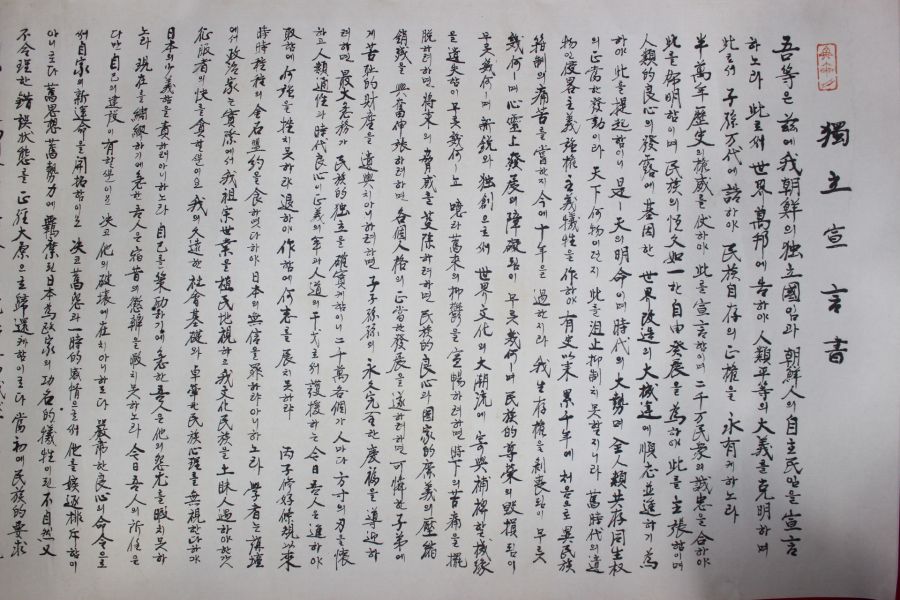 獨立宣言書
吾等은 玆에 我朝鮮의 独立國임과 朝鮮人의 自主民임을 宣言
하노라 此로써 世界萬邦에 告하야 人類平等의 大義를 克明하며
此로써 子孫万代에 誥하야 民族自存의 正權을 永有케하노라
半萬年歷史의 權威를 仗하야 此를 宣言함이며 二千万民衆의 誠忠을 合하야
此를 佈明함이며 民族의 恒久如一한 自由発展을 爲하야 此를 主張함이며
人類的良心의 發露에 基因한 世界改造의 大機運에 順応並進하기 爲
하야 此를 提起함이니 是ㅣ 天의 明命이며 時代의 大勢며 全人類共存同生权
의 正當한 發動이라 天下何物이던지 此를 沮止抑制치 못할지니라 舊時代의 遺
物인 侵畧主義强權主義의 犧牲을 作하야 有史以來 累千年에 처음으로 異民族
箝制의 痛苦를 嘗한지 今에 十年을 過한지라 我生存權을 剝喪됨이 무릇
幾何ㅣ며 心靈上發展의 障礙됨이 무릇 幾何ㅣ며 民族的尊榮의 毁損됨이
무릇 幾何ㅣ며 新銳와 独創으로써 世界文化의 大潮流에 寄與補裨할 機緣
을 遺失함이 무릇 幾何ㅣ뇨 噫라 舊來의 抑鬱을 宣暢하려하면 時下의 苦痛을 擺
脫하려하면 將來의 脅威를 芟除하려하면 民族的良心과 國家的廉義의 壓縮
銷殘을 興奮伸張하려하면 各個人格의 正當한 發展을 遂하려하면 可憐한 子弟에
게 苦恥的財産을 遺與치 아니하려하면 子子孫孫의 永久完全한 慶福을 導迎하
려하면 最大急務가 民族的独立을 確實케함이니 二千萬各個가 人마다 方寸의 刃을 懷
하고 人類通性과 時代良心이 正義의 軍과 人道의 干戈로써 護援하는 今日 吾人은 進하야
取함에 何强을 挫치 못하랴 退하야 作함에 何志를 展치 못하랴 丙子修好條規以來
時時種種의 金石盟約을 食하얏다하야 日本의 無信을 罪하랴 아니하노라 學者는 講壇
에서 政治家는 實際에서 我祖宗世業을 植民地視하고 我文化民族을 土昧人遇하야 한갓
征服者의 快를 貪할쁜이오 我의 久遠한 社會基礎와 卓犖한 民族心理를 無視한다하야
日本의 少義함을 責하려 아니하노라 自己를 策勵하기에 急한 吾人은 他의 怨尤를 暇치 못하
노라 現在를 綢繆하기에 急한 吾人은 宿昔의 懲辨을 暇치 못하노라 今日吾人의 所任은
다만 自己의 建設이 有할쁜이오 決코 他의 破壞에 在치 아니하도다 嚴肅한 良心의 命令으로
써 自家의 新運命을 開拓함이오 決코 舊怨과 一時的感情으로써 他를 嫉逐排斥함이
아니로다 舊思想舊勢力에 羈縻된 日本爲政家의 功名的犧牲이된 不自然又
不合理한 錯誤狀態를 正經大原으로 歸還케함이로다 當初에 民族的要求